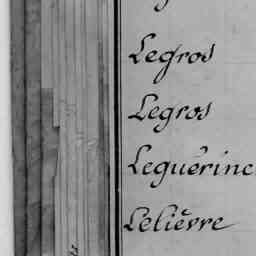 Legros
Legros
Leguérinc
Lelièvre